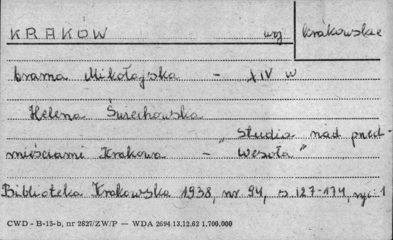 KRAKÓW woj krakowskie
brama Mikołajska - XIV w
Helena Świechowska
„Studia nad przed-
mieściami Krakowa - Wesoła"
Biblioteka Krakowska 1938, nr 94, s 127-174, ryc. 1
CWD - B-15-b, nr 2827/ZW/P — WDA 2694 13.12.62 1.700.000